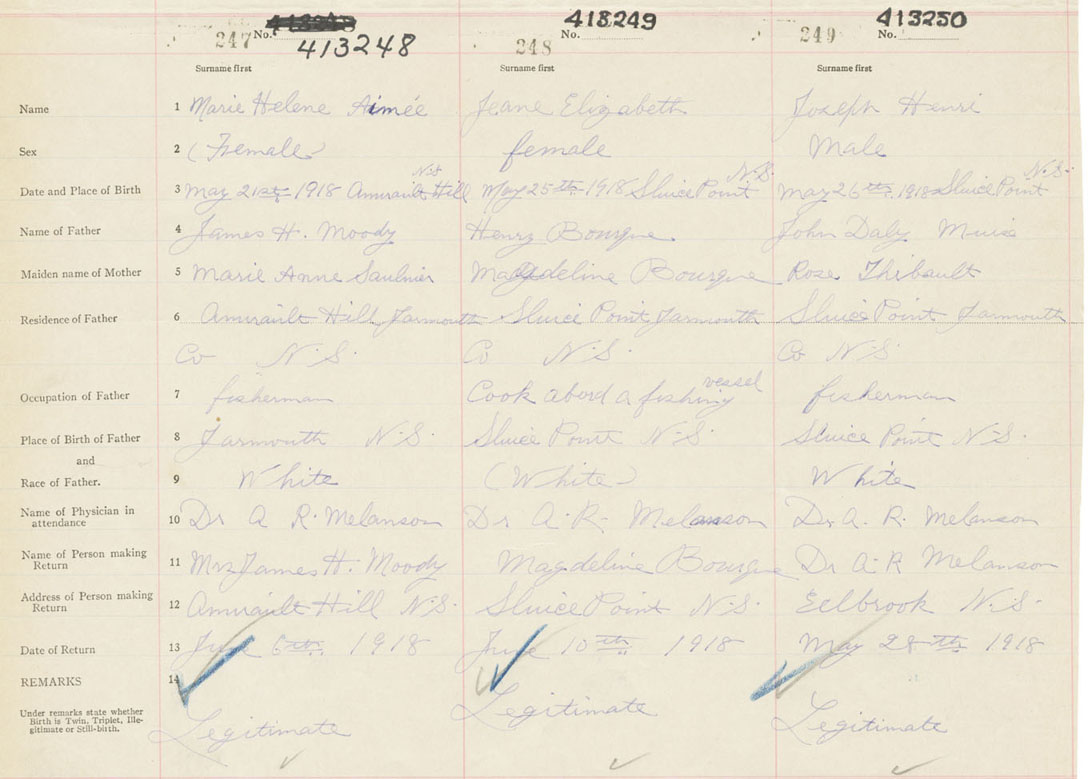 413248 418249 413250
247 No. 413248 248 No. 249 No.
Surname first Surname first Surname first
Name 1 Marie Helene Aimée Jeane Elizabeth Joseph Henri
Sex 2 (Female) female Male
N.S N.S. N.S.
Date and Place of Birth 3 May 21st 1918 Amirault Hill May 25th 1918 Sluice Point May 26th 1918 Sluice Point
Name of Father 4 James H. Moody Henry Bourque. John Daby Muise
Maiden name of Mother 5 Marie Anne Saulnier Magdeline Bourque Rose Thibault
Residence of Father 6 Amirault Hill Yarmouth Sluice Point Yarmouth Sluice Point Yarmouth
Co N.S. Co N.S. Co N.S.
vessel
Occupation of Father 7 fisherman Cook abord a fishing fisherman
Place of Birth of Father 8 Yarmouth N.S. Sluice Point N.S. Sluice Point N.S.
and
Race of Father. 9 White (White) White
Name of Physician in
attendance 10 Dr A R. Melanson Dr A. R. Melanson Dr. A. R. Melanson
Name of Person making
Return 11 Mrs James H. Moody Magdeline Bourque Dr A. R Melanson
Address of Person making
Return 12 Amirault Hill N.S. Sluice Point N.S. Eelbrook N.S.
Date of Return 13 June 6th 1918 June 10th 1918 May 28th 1918
REMARKS 14
Under remarks state whether
Birth is Twin, Triplet, Ille-
gitimate or Still-birth.
Legitimate Legitimate Legitimate